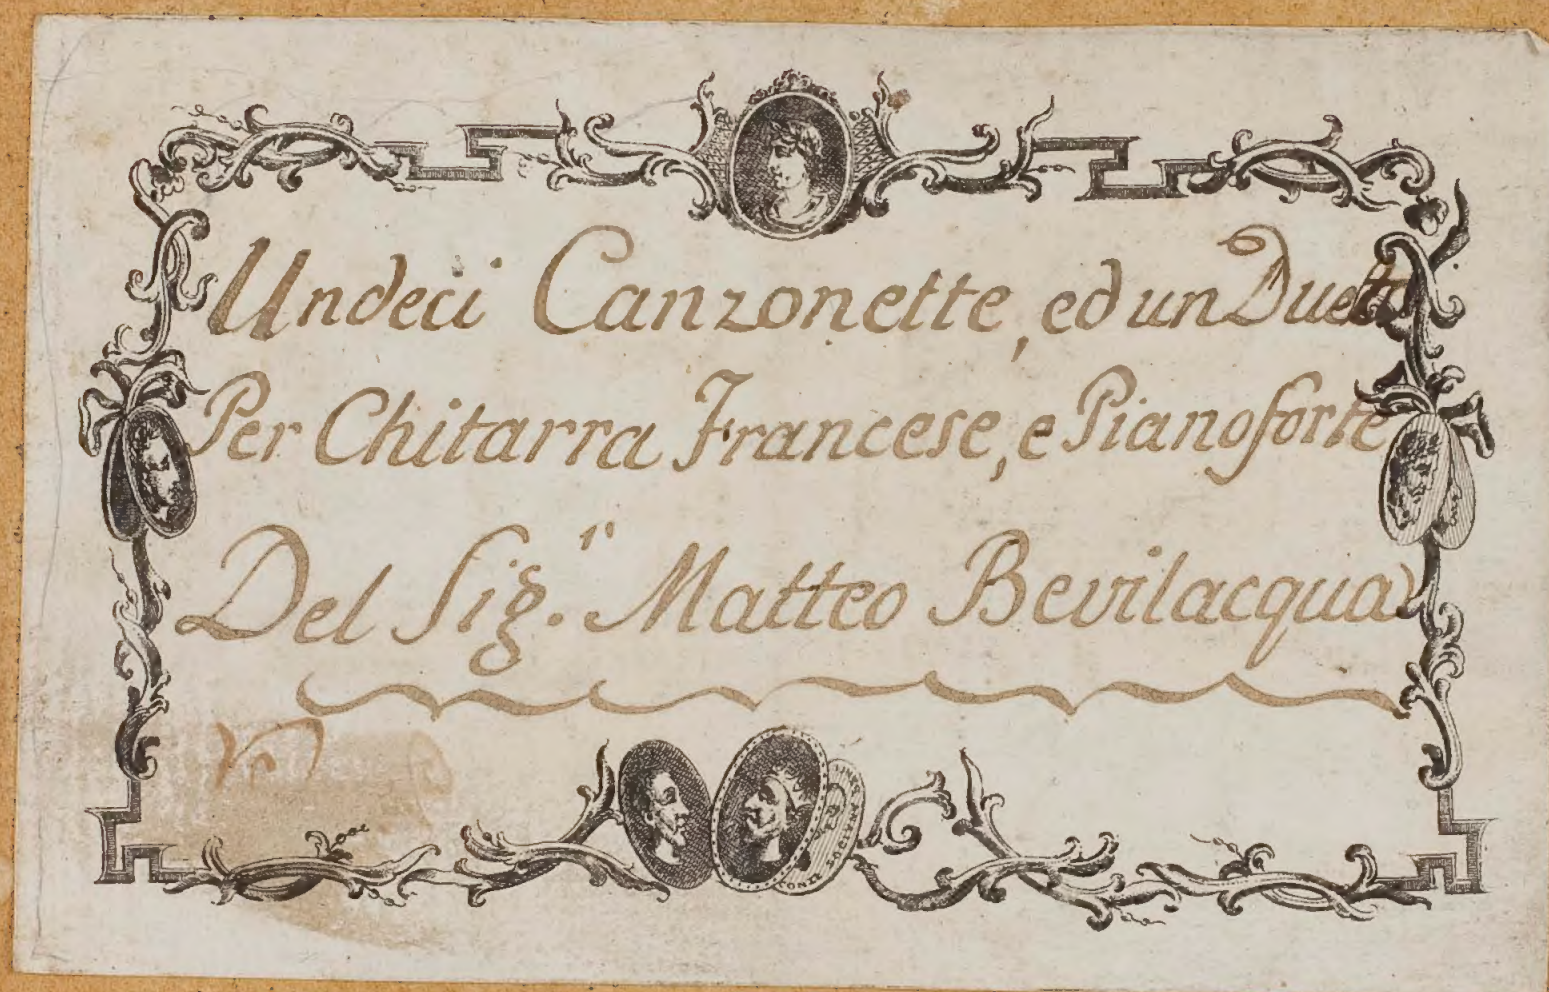 Undeci Canzonette, ed un Duetto
Per Chitarra Francese, e Pianoforte
Del Sig.r Matteo Bevilacqua